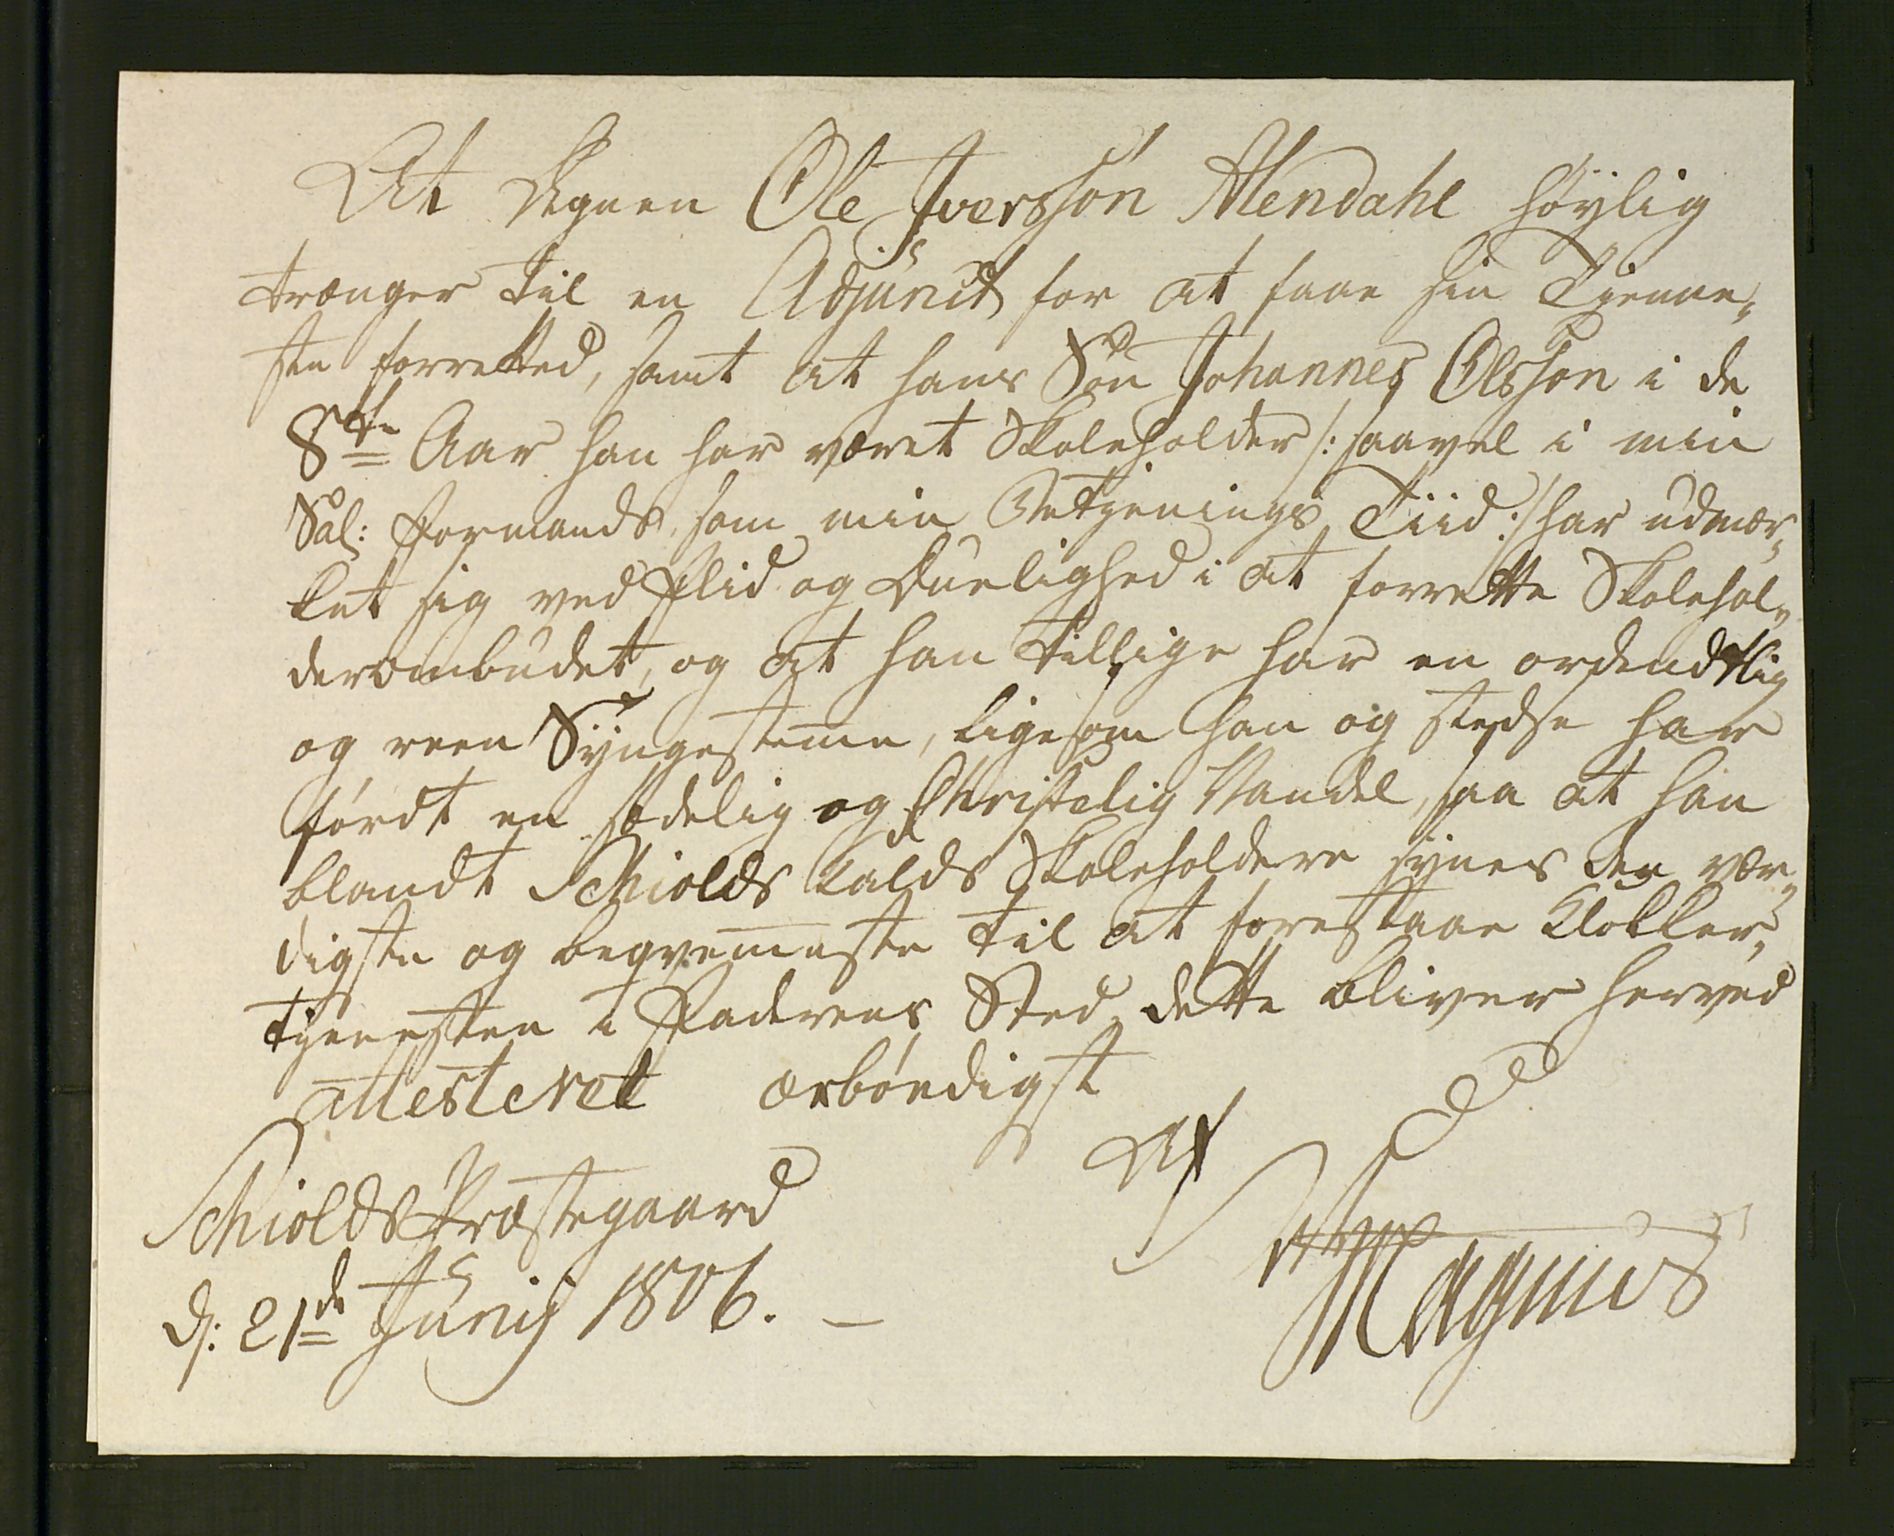 At Degnen Ole Iversson Alendahl høylig
trænger til en Adjunct for at faae sin Tjenne„
ste forretted, samt at hans Søn Johannes Olsson i de
8te Aar han har været Skoleholder /: saavel i min
Sal: Formands, som min Betjenings Tiid :/ har udmær„
ket sig ved Flid og Duelighed i at forrette Skolehol„
derombudet, og at han tillige har en ordendtlig
og reen Syngestemme, ligesom han og stedse har
ført en sædelig og Christelig Vandel, saa at han
blandt Schiolds Kalds Skoleholdere synes den vær„
digste og beqvemmeste til at forestaae Klokker„
tjenesten i Faderens Sted, dette bliver herved
attesteret ærbødigst
Af
Schiolds Præstegaard
d: 21de Junij 1806. —
Magnus